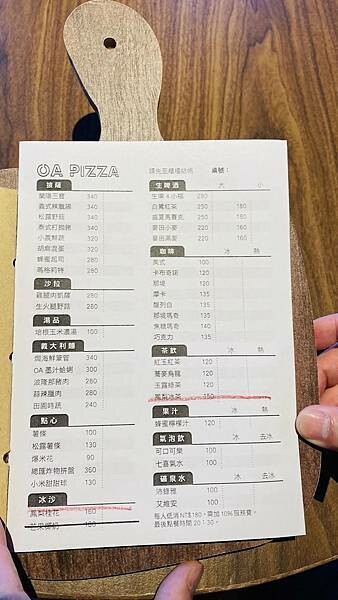 OA PIZZA
披薩
蘭陽三寶 340
義式辣臘腸 340
松露野菇 340
泰式打拋豬 340
小農鮮蔬 320
胡麻混蛋 320
蜂蜜起司 280
瑪格莉特 280
沙拉
雞腿肉凱薩 280
生火腿野菇 280
湯品
培根玉米濃湯 100
義大利麵
焗海鮮筆管 340
OA 墨汁蛤蜊 300
波隆那豬肉 260
蒜辣臘肉 280
田園時蔬 240
點心
薯條 100
松露薯條 130
爆米花 90
總匯炸物拼盤 360
小米甜甜球 130
冰沙
鳳梨桂花 160
芒果椰奶 180
請先至櫃檯結帳 桌號:
生啤酒 大 小
生啤 4 小福 250
白鷺紅茶 250 180
麥田小麥 220 160
麥田黑麥 220 160
咖啡 冰 熱
美式 100
卡布奇諾 120
那堤 120
摩卡 135
馥列白 135
那堤瑪奇 135
焦糖瑪奇 140
巧克力 135
茶飲 冰 熱
紅玉紅茶 120
蕎麥烏龍 120
玉露綠茶 120
鳳梨冰茶 150
果汁 冰 熱
蜂蜜檸檬汁 120
氣泡飲 冰 去冰
可口可樂 100
七喜氣水 100
礦泉水 冰 去冰
沛綠雅 100
艾維安 100
每人低消 NT$180，需加 10% 服務費。
最後點餐時間 20：30。